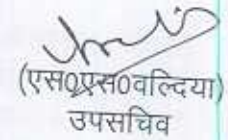 (एस0एस0वल्दिया)
उपसचिव